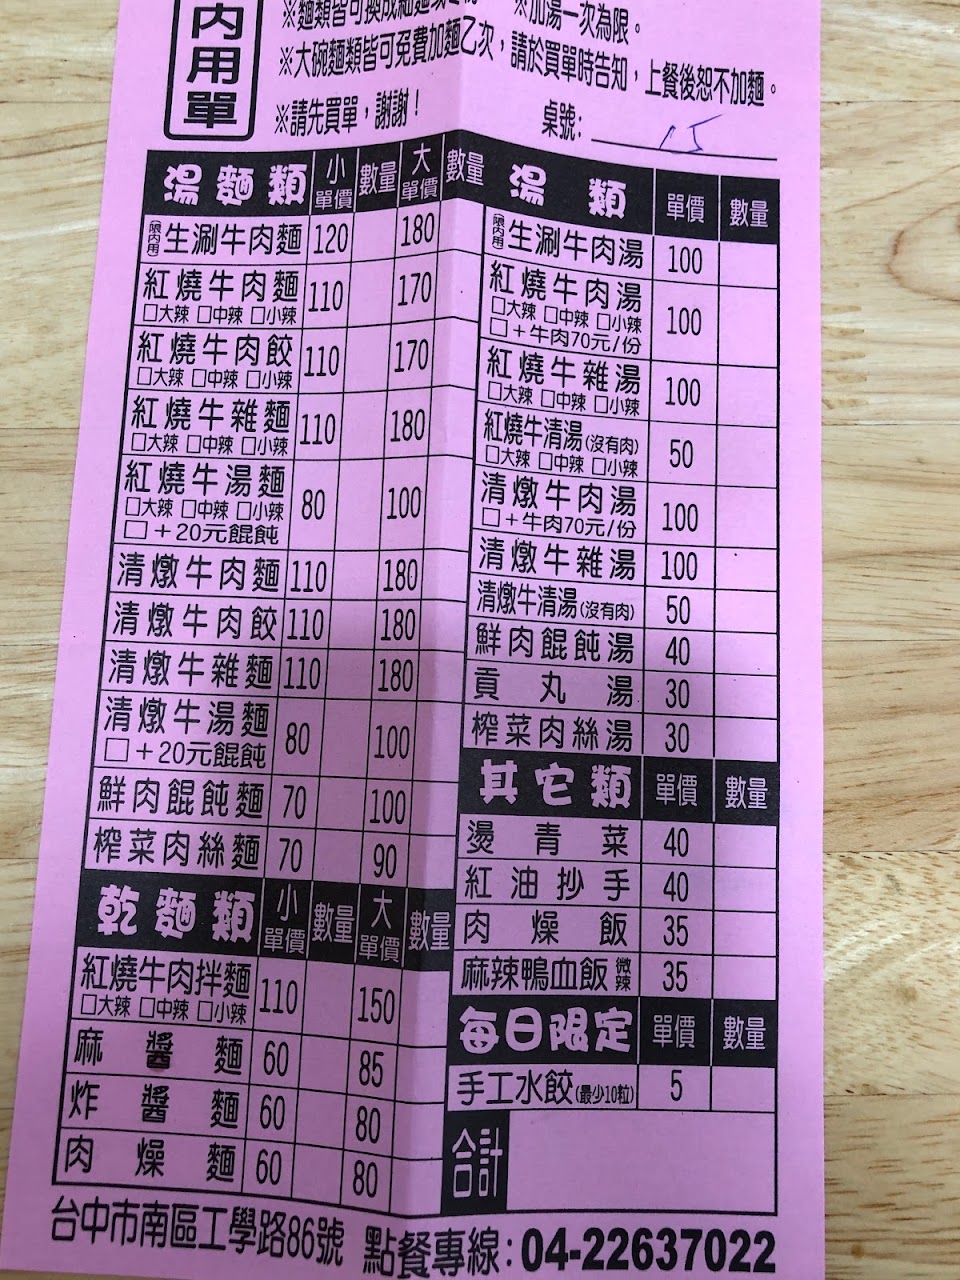 內用單
※麵類皆可換成細麵或
※加湯一次為限。
※大碗麵類皆可免費加麵乙次，請於買單時告知，上餐後恕不加麵。
※請先買單，謝謝！
桌號：15
湯麵類 小單價 數量 大單價 數量
(限內用)生涮牛肉麵 120 180
紅燒牛肉麵 110 170
□大辣 □中辣 □小辣
紅燒牛肉餃 110 170
□大辣 □中辣 □小辣
紅燒牛雜麵 110 180
□大辣 □中辣 □小辣
紅燒牛湯麵 80 100
□大辣 □中辣 □小辣
□＋20元餛飩
清燉牛肉麵 110 180
清燉牛肉餃 110 180
清燉牛雜麵 110 180
清燉牛湯麵 80 100
□＋20元餛飩
鮮肉餛飩麵 70 100
榨菜肉絲麵 70 90
乾麵類 小單價 數量 大單價 數量
紅燒牛肉拌麵 110 150
□大辣 □中辣 □小辣
麻醬麵 60 85
炸醬麵 60 80
肉燥麵 60 80
湯類 單價 數量
(限內用)生涮牛肉湯 100
紅燒牛肉湯 100
□大辣 □中辣 □小辣
□＋牛肉70元/份
紅燒牛雜湯 100
□大辣 □中辣 □小辣
紅燒牛清湯(沒有肉) 50
□大辣 □中辣 □小辣
清燉牛肉湯 100
□＋牛肉70元/份
清燉牛雜湯 100
清燉牛清湯(沒有肉) 50
鮮肉餛飩湯 40
貢丸湯 30
榨菜肉絲湯 30
其它類 單價 數量
燙青菜 40
紅油抄手 40
肉燥飯 35
麻辣鴨血飯 微辣 35
每日限定 單價 數量
手工水餃(最少10粒) 5
合計
台中市南區工學路86號 點餐專線：04-22637022